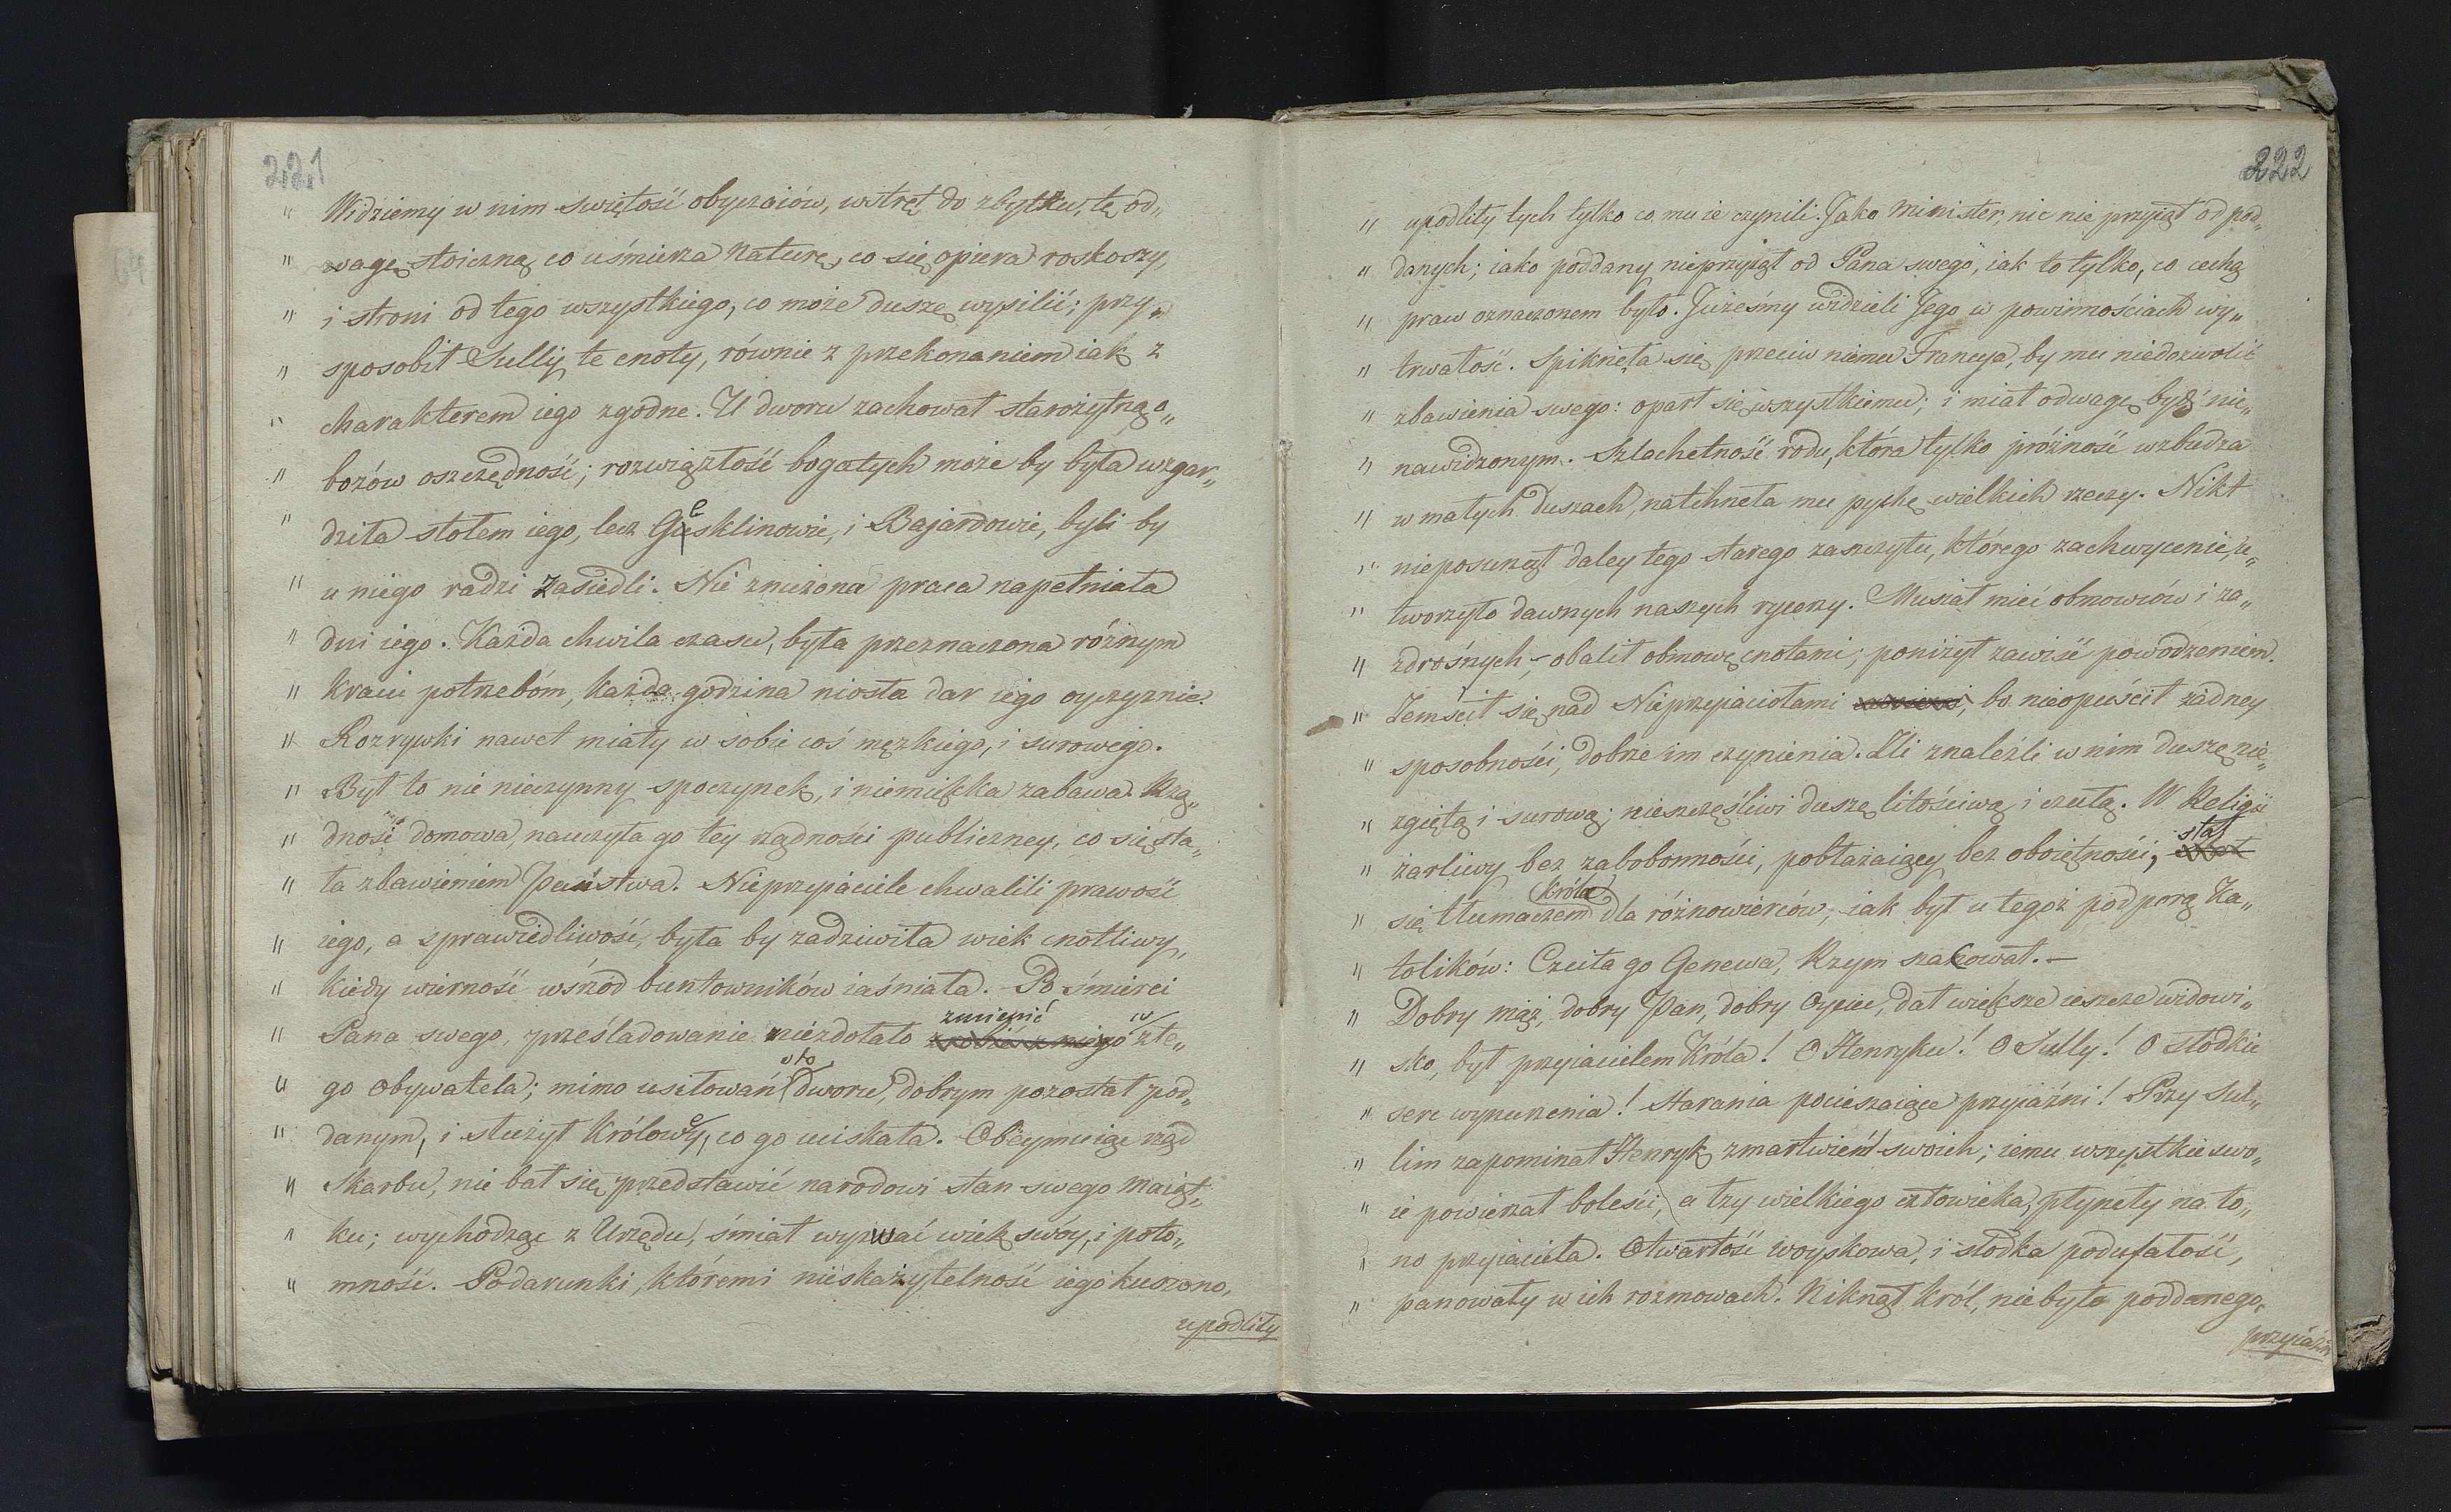 221
„ Widziemy w nim swiętość obyczaiów, wstręt do zbytku, tę od„
„ wagę stoiczną co uśmierza Naturę, co się opiera roskoszy,
„ i stroni od tego wszystkiego, co może duszę wysilić; przy„
„ sposobił Sully te cnoty, równie z przekonaniem iak z
„ charakterem iego zgodne. U dworu zachował starożytną o„
„ bozów oszczędność; rozwiązłość bogatych może by była wzgar„
„ dziła stołem iego, lecz Gesklinowie, i Bajardowie, byli by
„ u niego radzi zasiedli. Nie znużona praca napełniała
„ dni iego. Każda chwila czasu, była przeznaczona różnym
„ kraiu potrzebóm, każda godzina niosła dar iego oyczyznie.
„ Rozrywki nawet miały w sobie coś męzkiego, i surowego.
„ Był to nie nieczynny spoczynek, i niemiękka zabawa. Rzą„
„ dność domowa, nauczyła go tey rządności publiczney, co się sta„
„ ła zbawieniem Państwa. Nieprzyiaciele chwalili prawość
„ iego, a sprawiedliwość, była by zadziwiła wiek cnotliwy,
„ kiedy wierność wśród buntowników iaśniała. Po śmierci
„ Pana swego, prześladowanie niezdołało zmienić w złe„
„ go obywatela; mimo usiłowań dworu, dobrym pozostał pod„
„ danym, i służył Królowey, co go uciskała. Obeymuiąc rząd
„ Skarbu, nie bał się przedstawić narodowi stan swego maiąt„
„ ku; wychodząc z Urzędu, śmiał wyzwać wiek swóy, i poto„
„ mność. Podarunki, któremi nieskazytelność iego kuszono,
upodliły
222
„ upodliły tych tylko co mu ie czynili. Jako Minister, nic nie przyiął od pod„
„ danych; iako poddany nieprzyiął od Pana swego, iak to tylko, co cechą
„ praw oznaczonem było. Jużeśmy widzieli Jego w powinnościach wy„
„ trwałość. Spiknęła się przeciw niemu Francya, by mu niedozwolić
„ zbawienia swego: oparł się wszystkiemu; i miał odwagę być nie„
„ nawidzonym. Szlachetność rodu, która tylko próżność wzbudza
„ w małych duszach, natchneła mu pychę wielkich rzeczy. Nikt
„ nieposunął daley tego starego zaszczytu, którego zachwycenie, u„
„ tworzyło dawnych naszych rycerzy. Musiał mieć obmowców i za„
„ zdrośnych, – obalił obmowę cnotami; poniżył zawiść powodzeniem.
„ Zemścił się nad Nieprzyiaciołami, bo nieopuścił żadney
„ sposobności, dobrze im czynienia. Źli znaleźli w nim duszę nie„
„ zgiętą i surową; nieszczęśliwi duszę litościwą i czułą. W Religii
„ żarliwy bez zabobonności, pobłażaiący bez oboiętności, stał
„ się tłumaczem Króla dla różnowierców, iak był u tegoż podporą Ka„
„ tolików: Czciła go Genewa, Rzym szacował. –
„ Dobry mąż, dobry Pan, dobry Oyciec, dał większe ieszcze widowi„
„ sko, był przyiacielem Króla! O Henryku! O Sully! O słodkie
„ serc wynurzenia! Starania pocieszaiące przyiaźni! Przy Sul„
„ lim zapominał Henryk zmartwień swoich; iemu wszystkie swo„
„ ie powierzał boleści, a łzy wielkiego człowieka, płynęły na ło„
„ no przyiaciela. Otwartość woyskowa, i słodka podufałość,
„ panowały w ich rozmowach. Niknął Król, niebyło poddanego,
przyiaźń